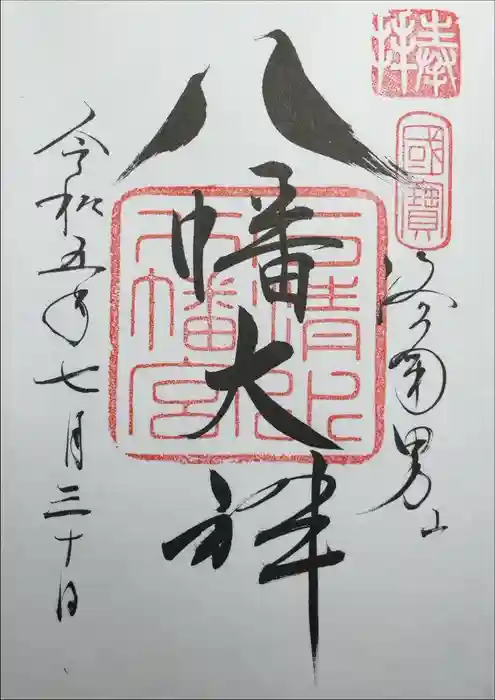 奉拝
國寶
洛南男山
八幡大神
石清水八幡宮
令和五年七月三十日